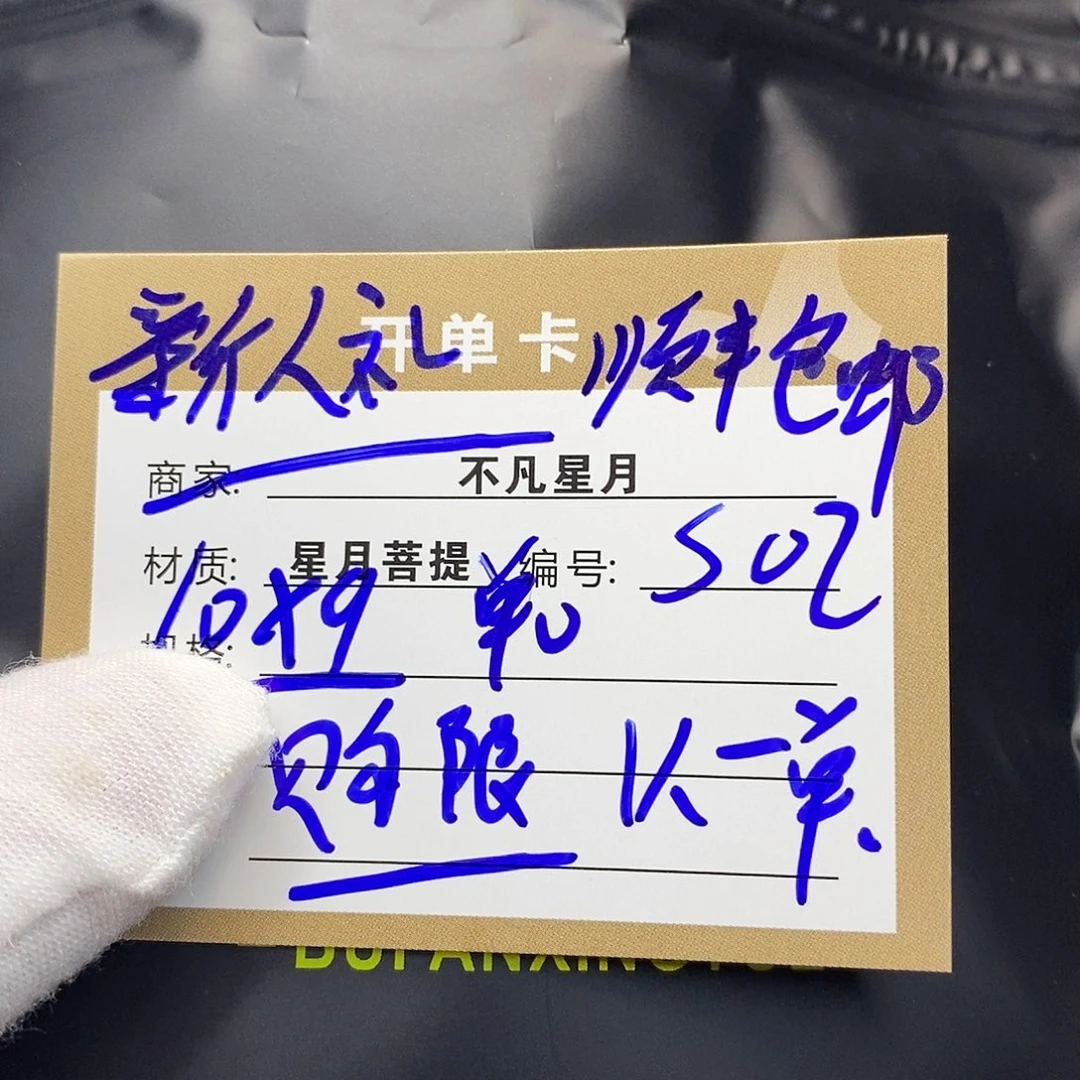 开单卡
新人礼 顺丰包邮
商家: 不凡星月
材质: 星月菩提 编号: 502
规格: 10x9 单
限 1人一单.